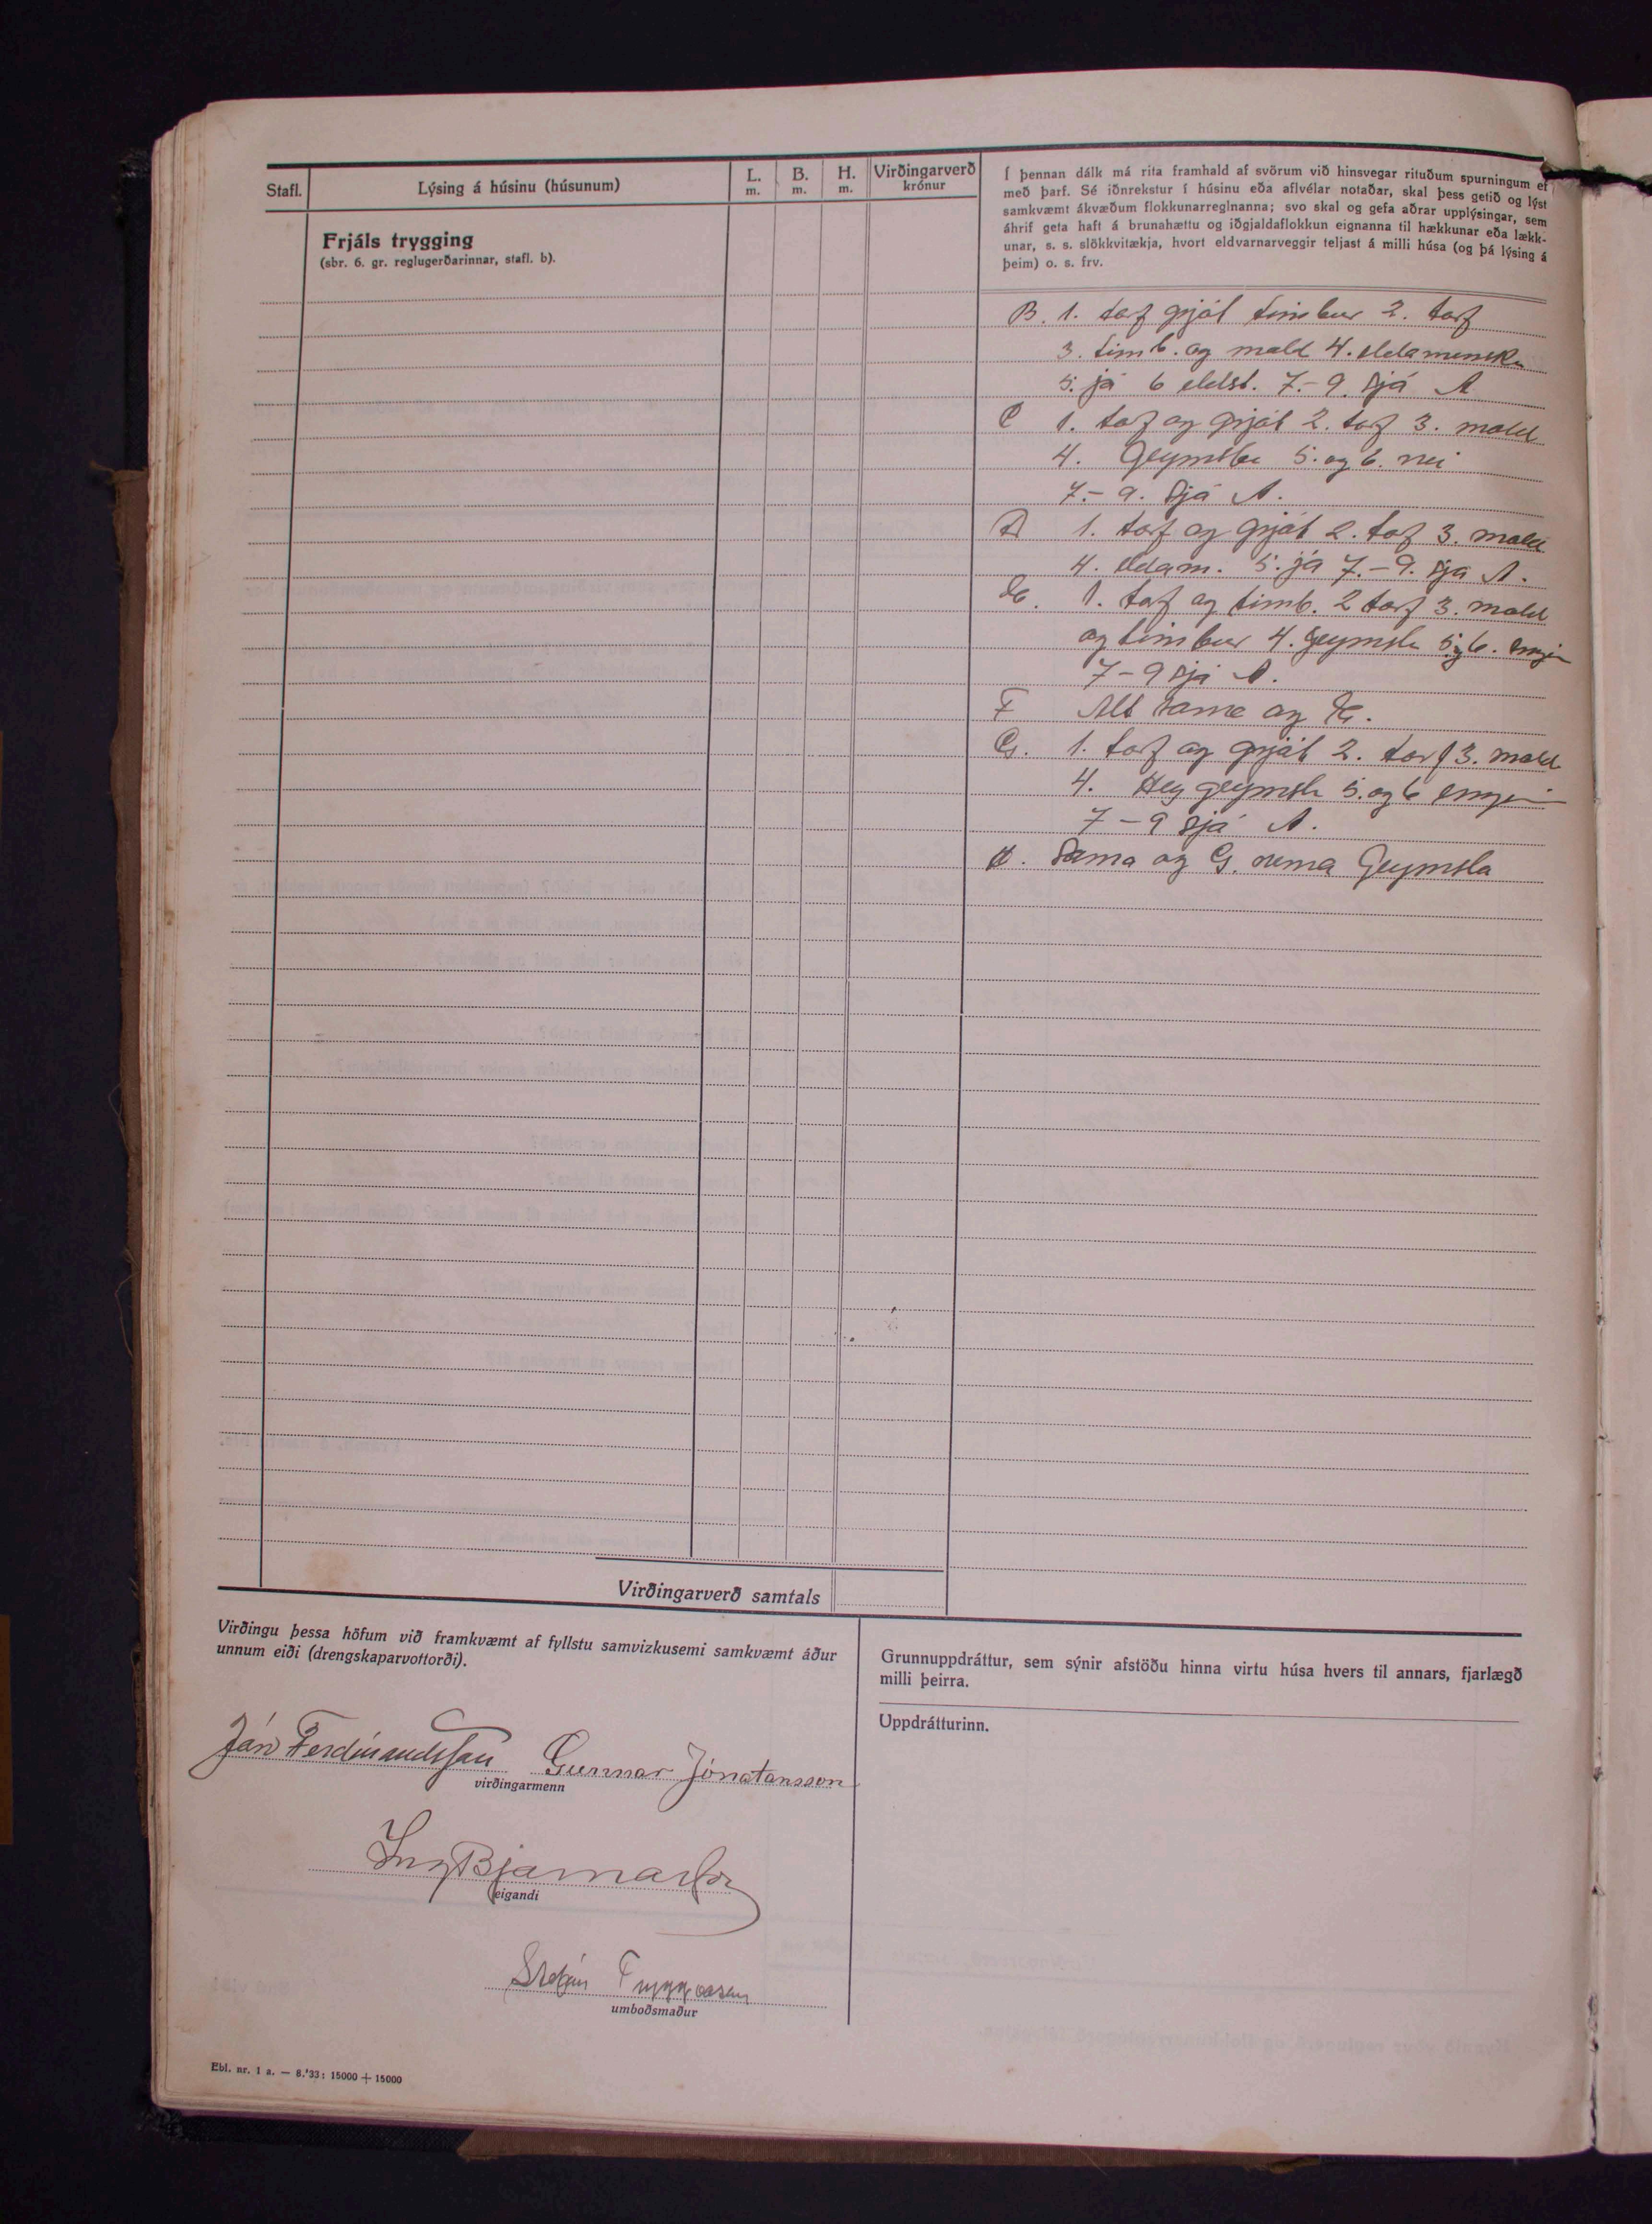 Stafl.
Lýsing á húsinu (húsunum)
L.
m.
B.
m.
H.
m.
Virðingarverð
krónur
Frjáls trygging
(sbr. 6. gr. reglugerðarinnar, stafl. b).
Í þennan dálk má rita framhald af svörum við hinsvegar rituðum spurningum ef
með þarf. Sé iðnrekstur í húsinu eða aflvélar notaðar, skal þess getið og lýst
samkvæmt ákvæðum flokkunarreglnanna; svo skal og gefa aðrar upplýsingar, sem
áhrif geta haft á brunahættu og iðgjaldaflokkun eignanna til hækkunar eða lækk-
unar, s. s. slökkvitækja, hvort eldvarnarveggir teljast á milli húsa (og þá lýsing á
þeim) o. s. frv.
B. 1. torf grjót timbur 2. torf
3. timb. og mold 4. eldamensku
5. já 6 eldst. 7.-9. sjá A
C 1. torf og grjót 2. torf 3. mold
4. Geymsla 5. og 6. nei
7.-9. sjá A.
D 1. torf og grjót 2. torf 3. mold
4. eldam. 5. já 7.-9. sjá A.
E. 1. torf og timb. 2 torf 3. mold
og timbur 4. geymsla 5 og 6. engin
7-9 sjá A.
F Alt sama og E.
G. 1. torf og grjót 2. torf 3. mold
4. Hey geymsla 5. og 6 engin
7-9 sjá A.
H. Sama og G. nema Geymsla
Virðingarverð samtals
Virðingu þessa höfum við framkvæmt af fyllstu samvizkusemi samkvæmt áður
unnum eiði (drengskaparvottorði).
Jón Ferdínandsson Gunnar Jónatansson
virðingarmenn
Ing Bjarnason
eigandi
Stefán Tryggvason
umboðsmaður
Grunnuppdráttur, sem sýnir afstöðu hinna virtu húsa hvers til annars, fjarlægð
milli þeirra.
Uppdrátturinn.
Ebl. nr. 1 a. — 8.'33: 15000 + 15000